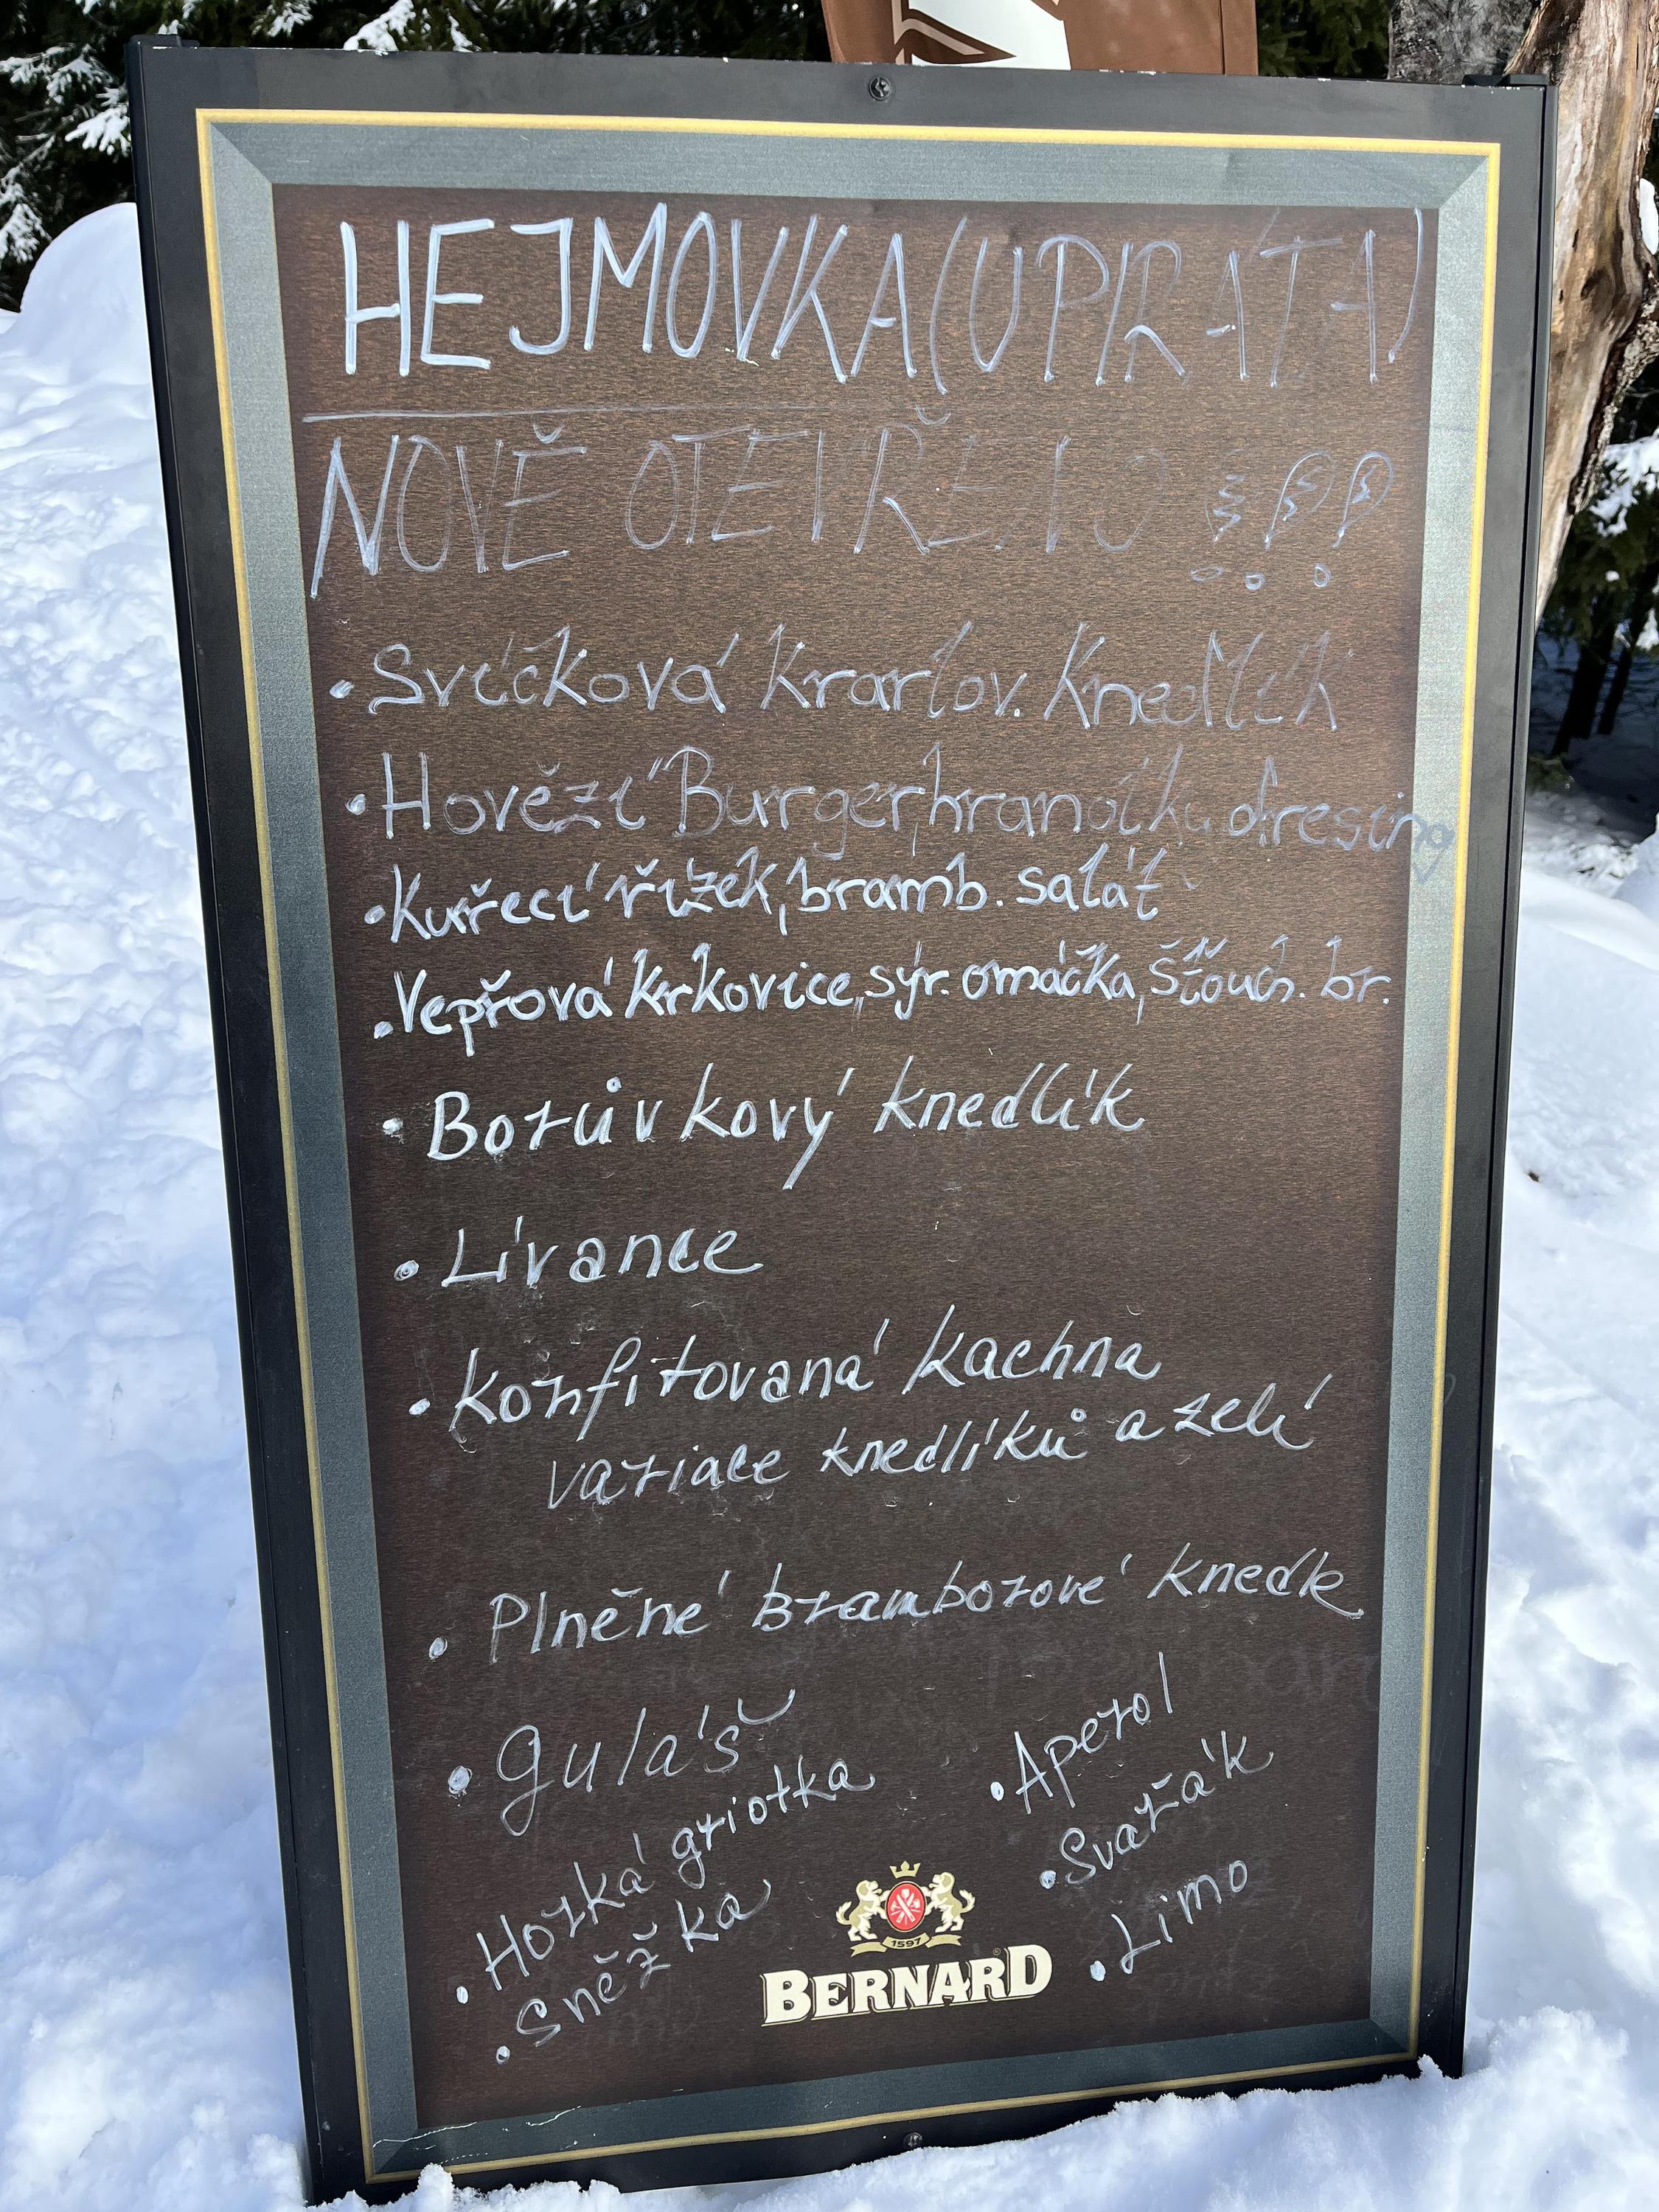 HEJMOVKA(U PIRÁTA)
NOVĚ OTEVŘENO !!!
• Svíčková karlov. knedlík
• Hovězí Burger, hranolky dresing
• Kuřecí řízek, bramb. salát
• Vepřová krkovice, sýr. omáčka, šťouch. br.
• Borůvkový knedlík
• Lívance
• Konfitovaná kachna
variace knedlíků a zelí
• Plněné bramborové knedle
• Guláš
• Horká griotka
• Sněžka
• Aperol
• Svařák
• Limo
1597
BERNARD